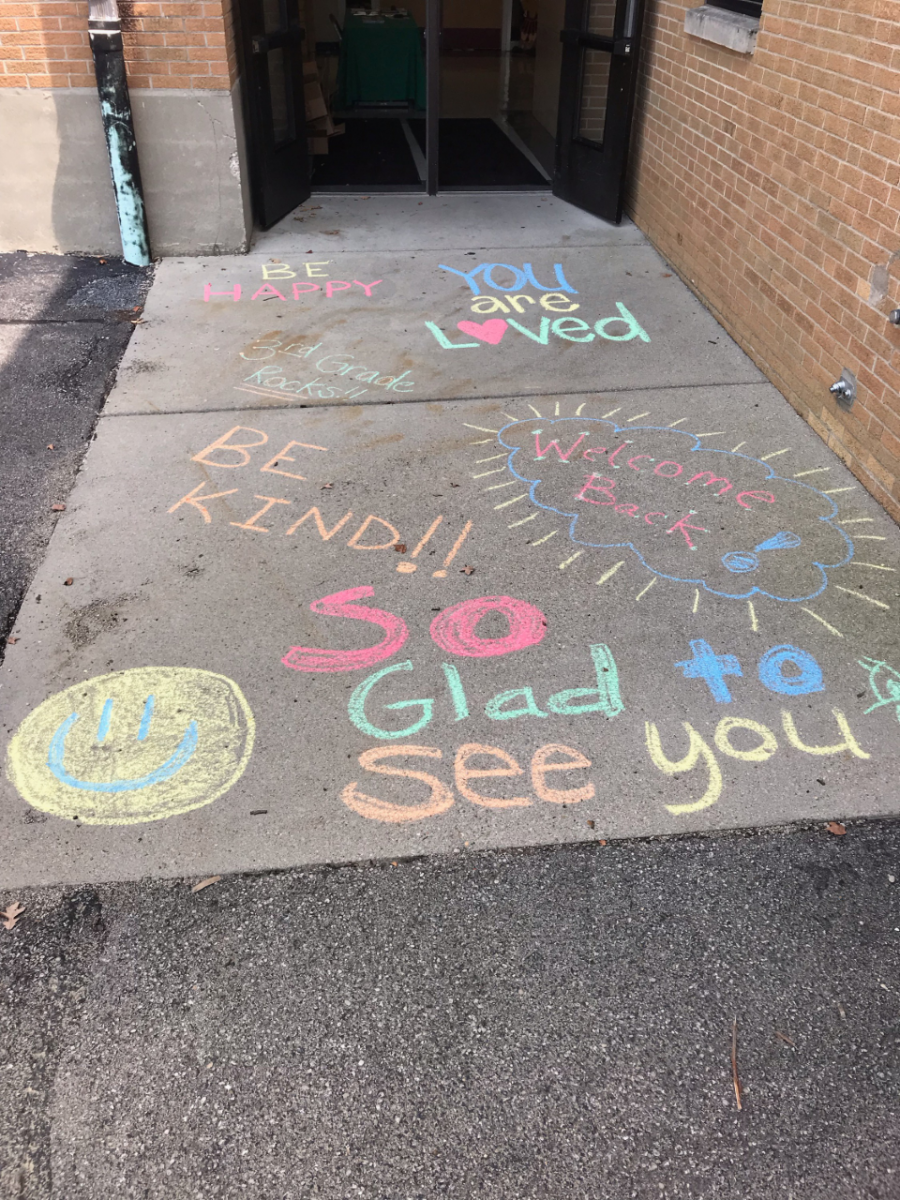 BE
HAPPY
YOU
are
Loved
3rd Grade
Rocks!!
BE
KIND!!
Welcome
Back!
So
Glad to
see you